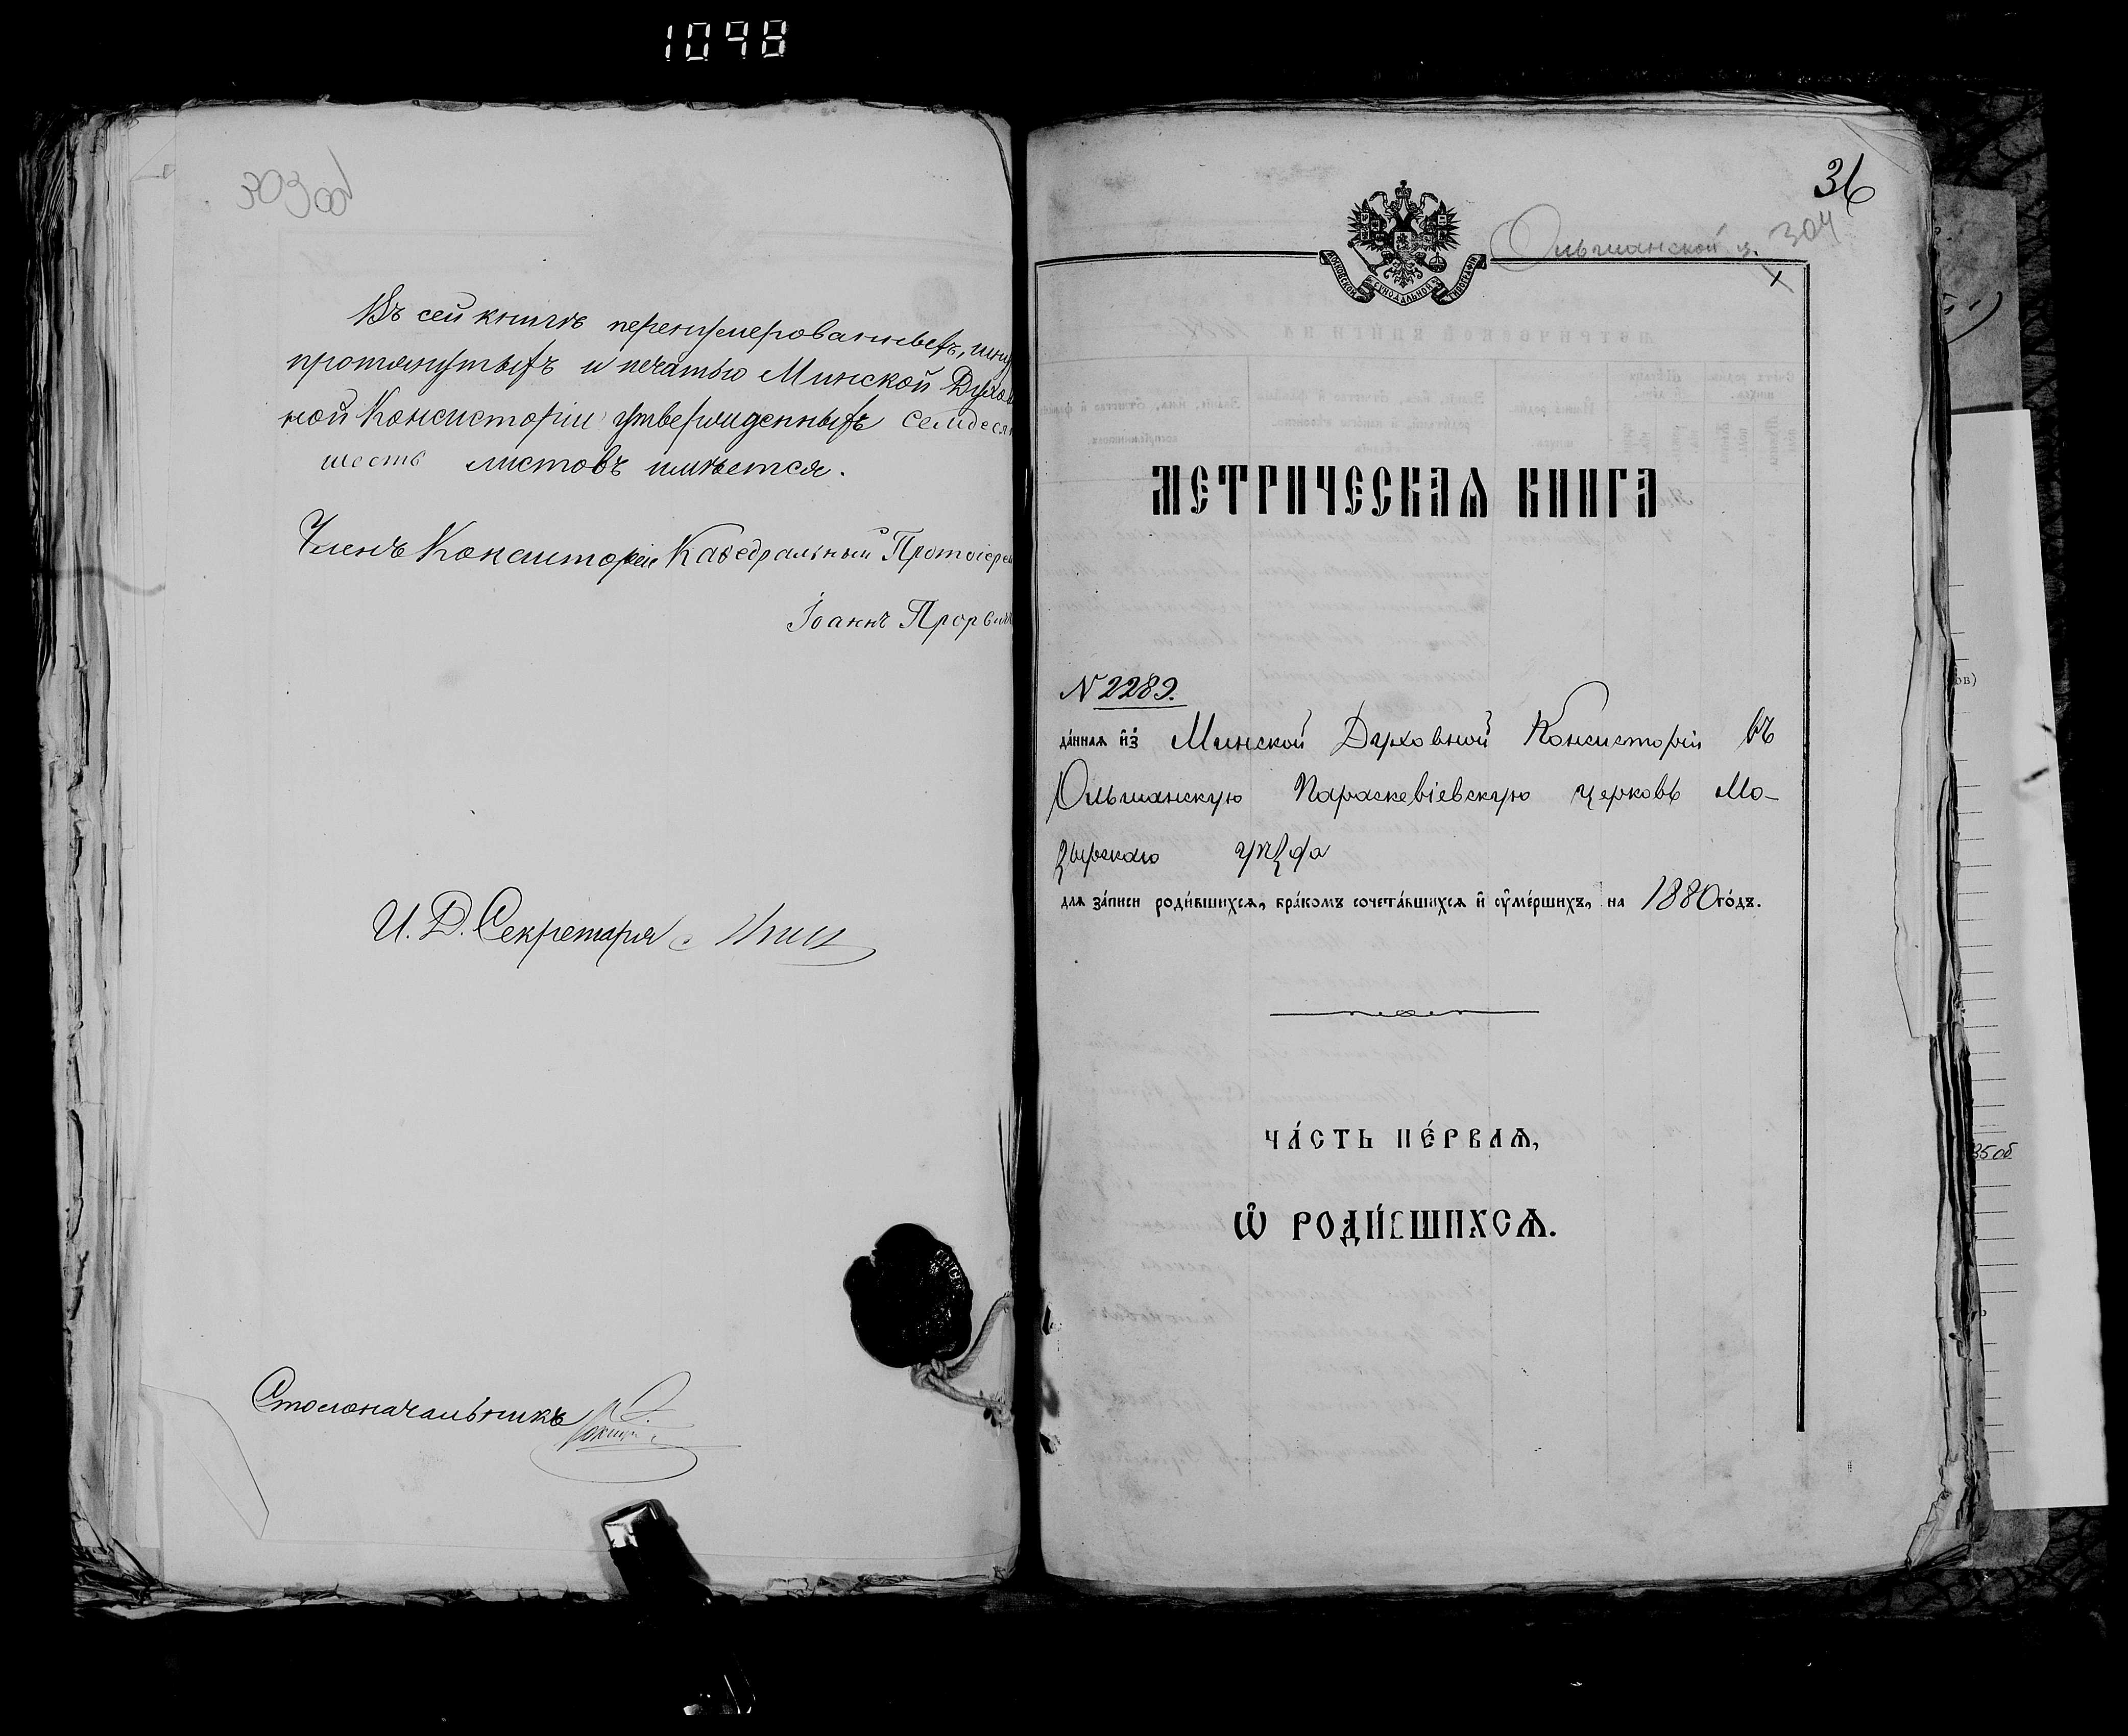 1098
303 об
Въ сей книгѣ перенумерованныхъ, шну
протянутыхъ и печатью Минской Духов
ной Консисторіи утвержденныхъ семдесят
шесть листовъ имѣется.
Членъ Консисторіи Каѳедральный Протоіерей
Іоаннъ Прорвич
И. Д. Секретаря
Столоначальникъ
36
Ольшанской ц. 304
МОСКОВСКОЙ СѴНОДАЛЬНОЙ ТИПОГРАФІИ
МЕТРИЧЕСКАѦ КНИГА
N 2289.
да́ннаѧ и҆з̾ Минской Духовной Консисторіи въ
Ольшанскую Параскевіевскую церковь Мо-
зырскаго уѣзда
длѧ за́писи роди́вшихсѧ, бра́комъ сочета́вшихсѧ и҆ оу҆ме́ршихъ, на 1880 го́дъ.
ЧА́СТЬ ПЕ́РВАѦ,
Ѡ҆ РОДИ́ВШИХСѦ.
35 об